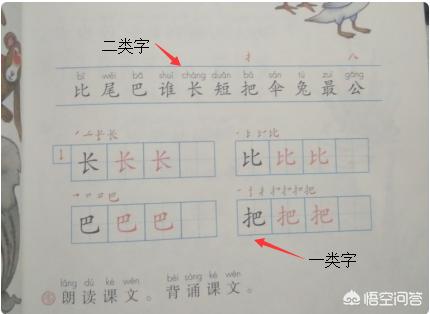 二类字
扌 八
bǐ wěi bā shuí cháng duǎn bǎ sǎn tù zuì gōng
比 尾 巴 谁 长 短 把 伞 兔 最 公
长 长 长 比 比 比
巴 巴 巴 把 把 把
一类字
lǎng dú kè wén bèi sòng kè wén
朗 读 课 文 。 背 诵 课 文 。
悟空问答